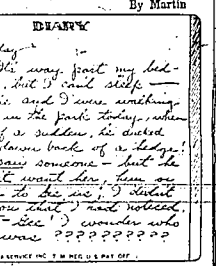 By Martin
DIARY
day —
the way past my bed-
, but I can't sleep —
and I were walking
in the park today, when
of a sudden, he ducked
down back of a hedge!
saw someone — but she
't want her, him or
to see us; I didn't
on that I had noticed,
- Gee! I wonder who
was ??????????
A SERVICE INC. T. M. REG. U. S. PAT. OFF.